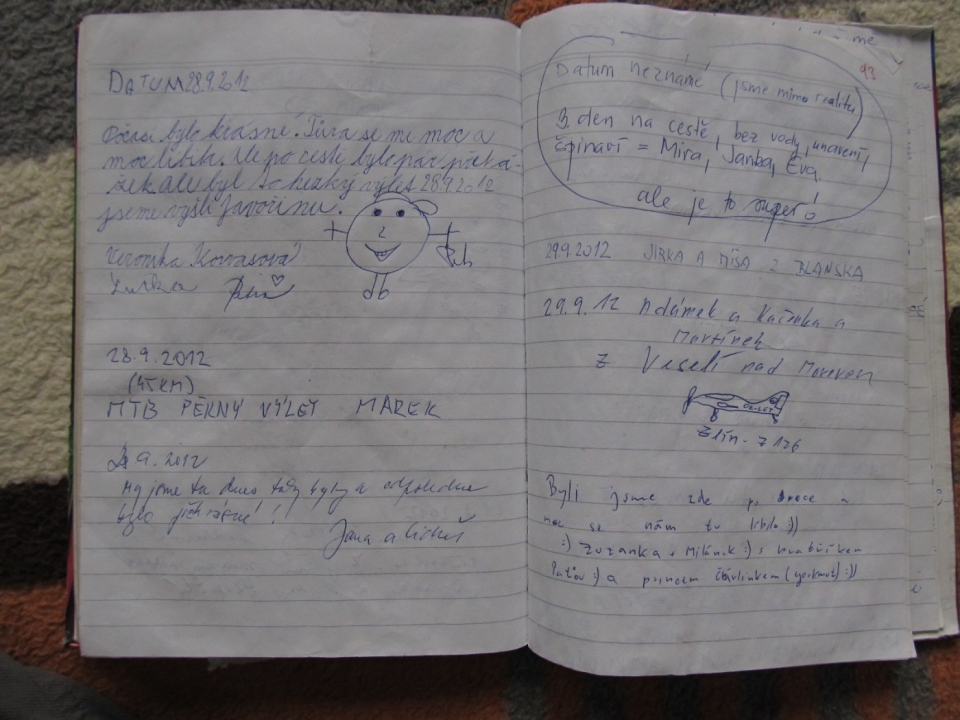 DATUM 28.9.2012
Počasí bylo krásné. Túra se mi moc a
moc líbila. Ale po cestě bylo pár překá-
žek ale byl to hezký výlet 28.9.2012
jsme vyšli Javořinu.
Veronika Kovasová
Lucka
28.9.2012
(45KM)
MTB PĚKNÝ VÝLET MAREK
9.2012
My jsme ta dnes taky byly a odpoledne
bylo překrásné!
Jana a
93
mě
Datum neznámé (jsme mimo realitu)
3. den na cestě, bez vody, unavení,
špinaví = Mira, Janba, Eva,
ale je to super!
29.9.2012 JIRKA A MÍŠA Z BLANSKA
29.9.12 Adámek a Kačenka a
Martínek
z Veselí nad Moravou
OK-LET
Zlín - Z 126
Byli jsme zde po roce a
moc se nám tu líbilo :))
:) Zuzanka + Milánek :) s
:) a princem (:))